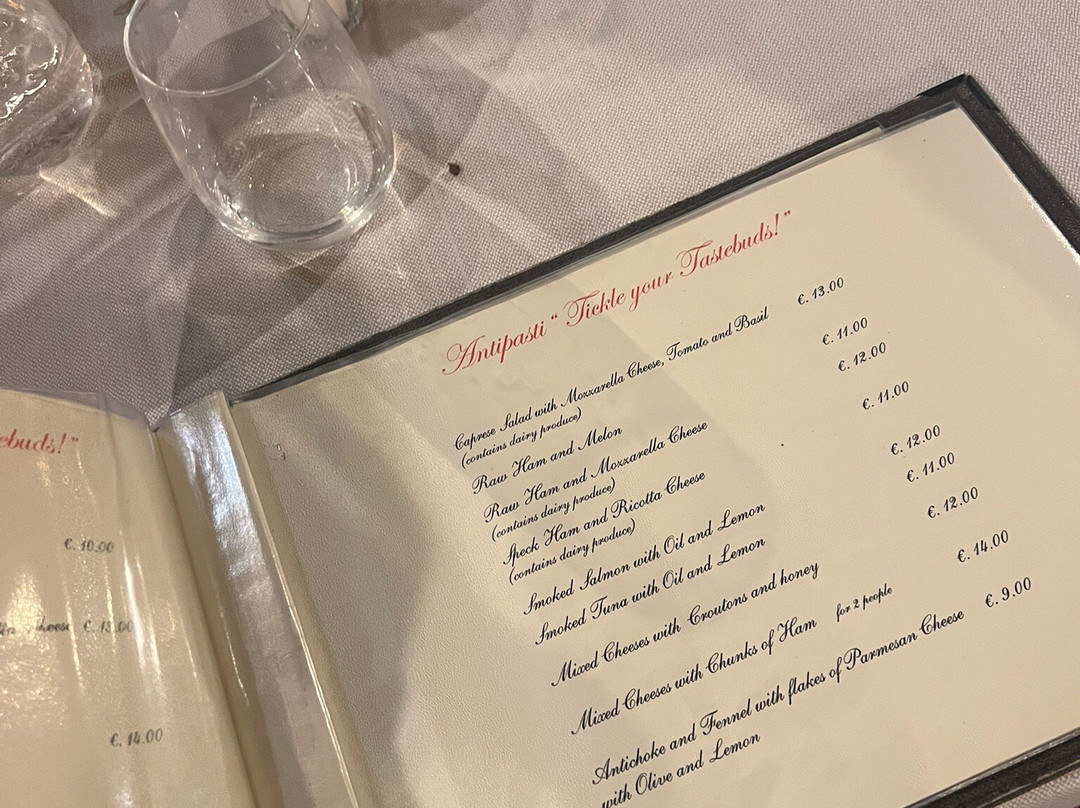 ebuds!"
€. 10.00
€. 13.00
€. 14.00
Antipasti " Tickle your Tastebuds!"
Caprese Salad with Mozzarella Cheese, Tomato and Basil €. 13.00
(contains dairy produce)
Raw Ham and Melon €. 11.00
Raw Ham and Mozzarella Cheese €. 12.00
(contains dairy produce)
Speck Ham and Ricotta Cheese €. 11.00
(contains dairy produce)
Smoked Salmon with Oil and Lemon €. 12.00
Smoked Tuna with Oil and Lemon €. 11.00
Mixed Cheeses with Croutons and honey €. 12.00
Mixed Cheeses with Chunks of Ham for 2 people €. 14.00
Antichoke and Fennel with flakes of Parmesan Cheese €. 9.00
with Olive and Lemon